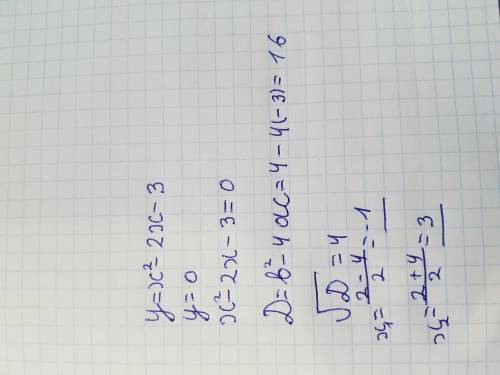 y=x²-2x-3
y=0
x²-2x-3=0
D=b²-4ac=4-4(-3)=16
√D=4
x₁=(2-4)/2=-1
x₂=(2+4)/2=3